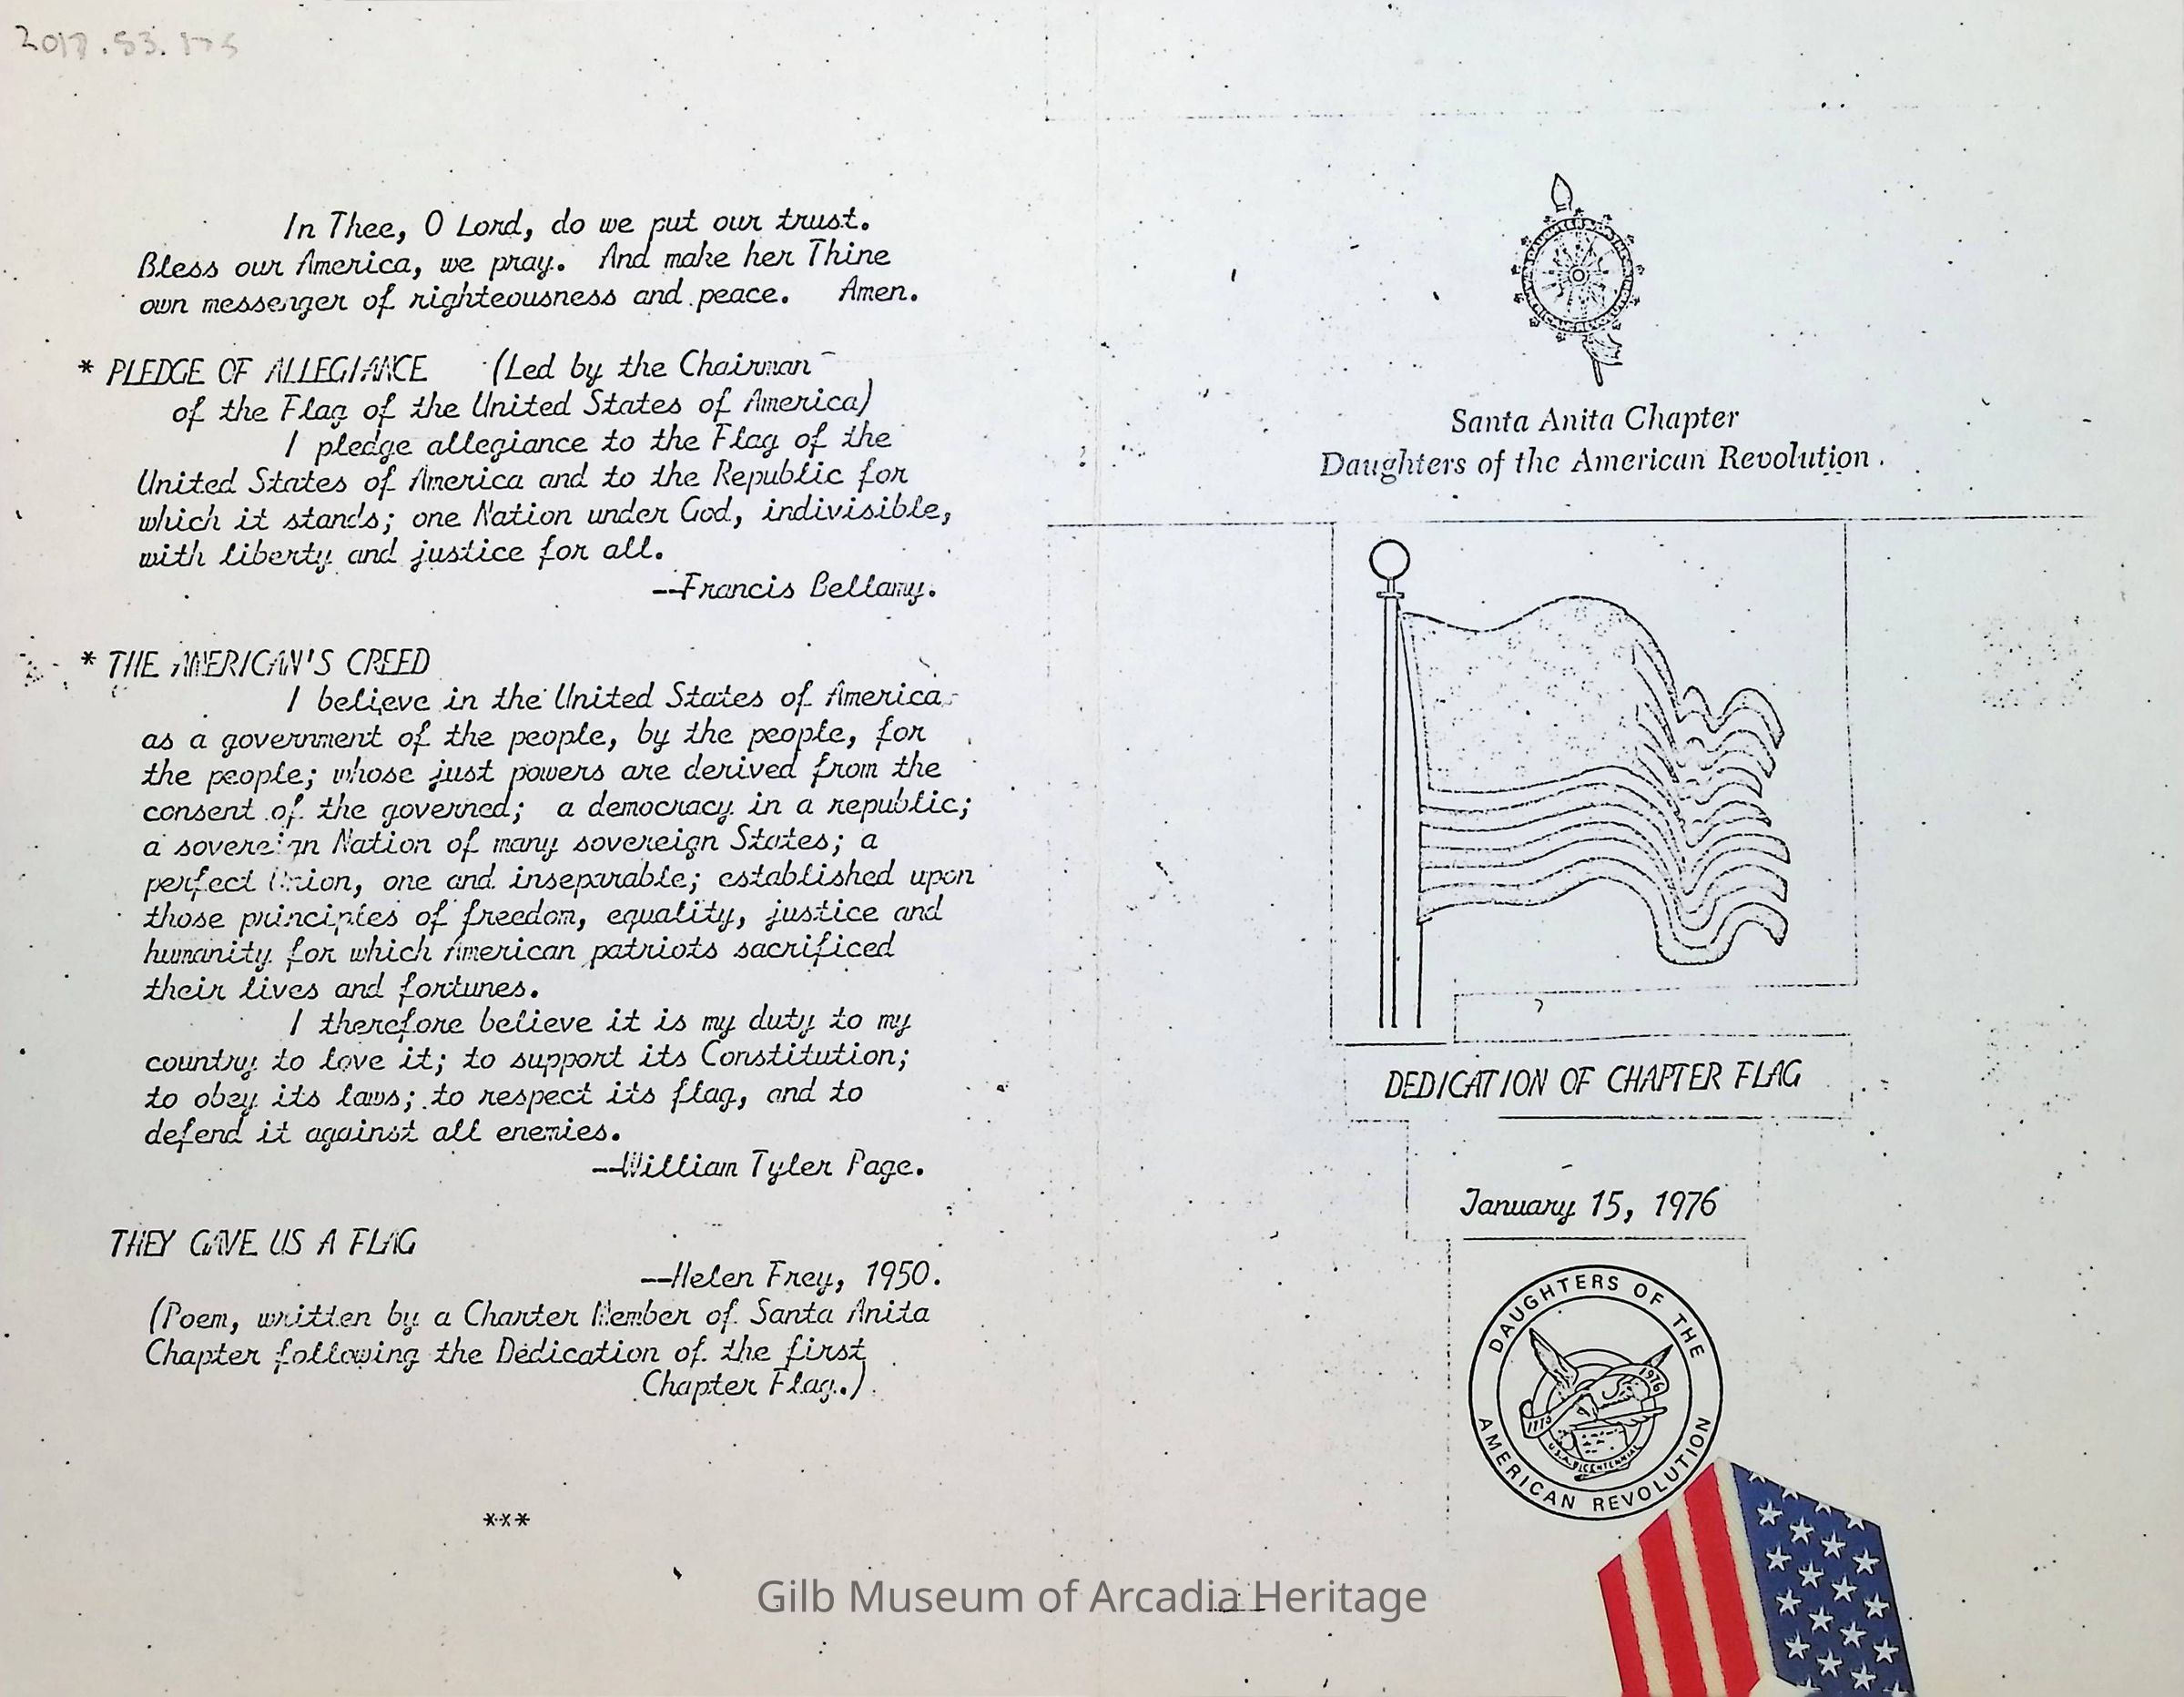 2017.53.175
In Thee, O Lord, do we put our trust.
Bless our America, we pray. And make her Thine
own messenger of righteousness and peace. Amen.
* PLEDGE OF ALLEGIANCE (Led by the Chairman
of the Flag of the United States of America)
I pledge allegiance to the Flag of the
United States of America and to the Republic for
which it stands; one Nation under God, indivisible,
with liberty and justice for all.
--Francis Bellamy.
* THE AMERICAN'S CREED
I believe in the United States of America
as a government of the people, by the people, for
the people; whose just powers are derived from the
consent of the governed; a democracy in a republic;
a sovereign Nation of many sovereign States; a
perfect Union, one and inseparable; established upon
those principles of freedom, equality, justice and
humanity for which American patriots sacrificed
their lives and fortunes.
I therefore believe it is my duty to my
country to love it; to support its Constitution;
to obey its laws; to respect its flag, and to
defend it against all enemies.
--William Tyler Page.
THEY GAVE US A FLAG
--Helen Frey, 1950.
(Poem, written by a Charter Member of Santa Anita
Chapter following the Dedication of the first
Chapter Flag.)
***
Santa Anita Chapter
Daughters of the American Revolution.
DEDICATION OF CHAPTER FLAG
January 15, 1976
DAUGHTERS OF THE
1776
1976
U.S.A. BICENTENNIAL
AMERICAN REVOLUTION
Gilb Museum of Arcadia Heritage